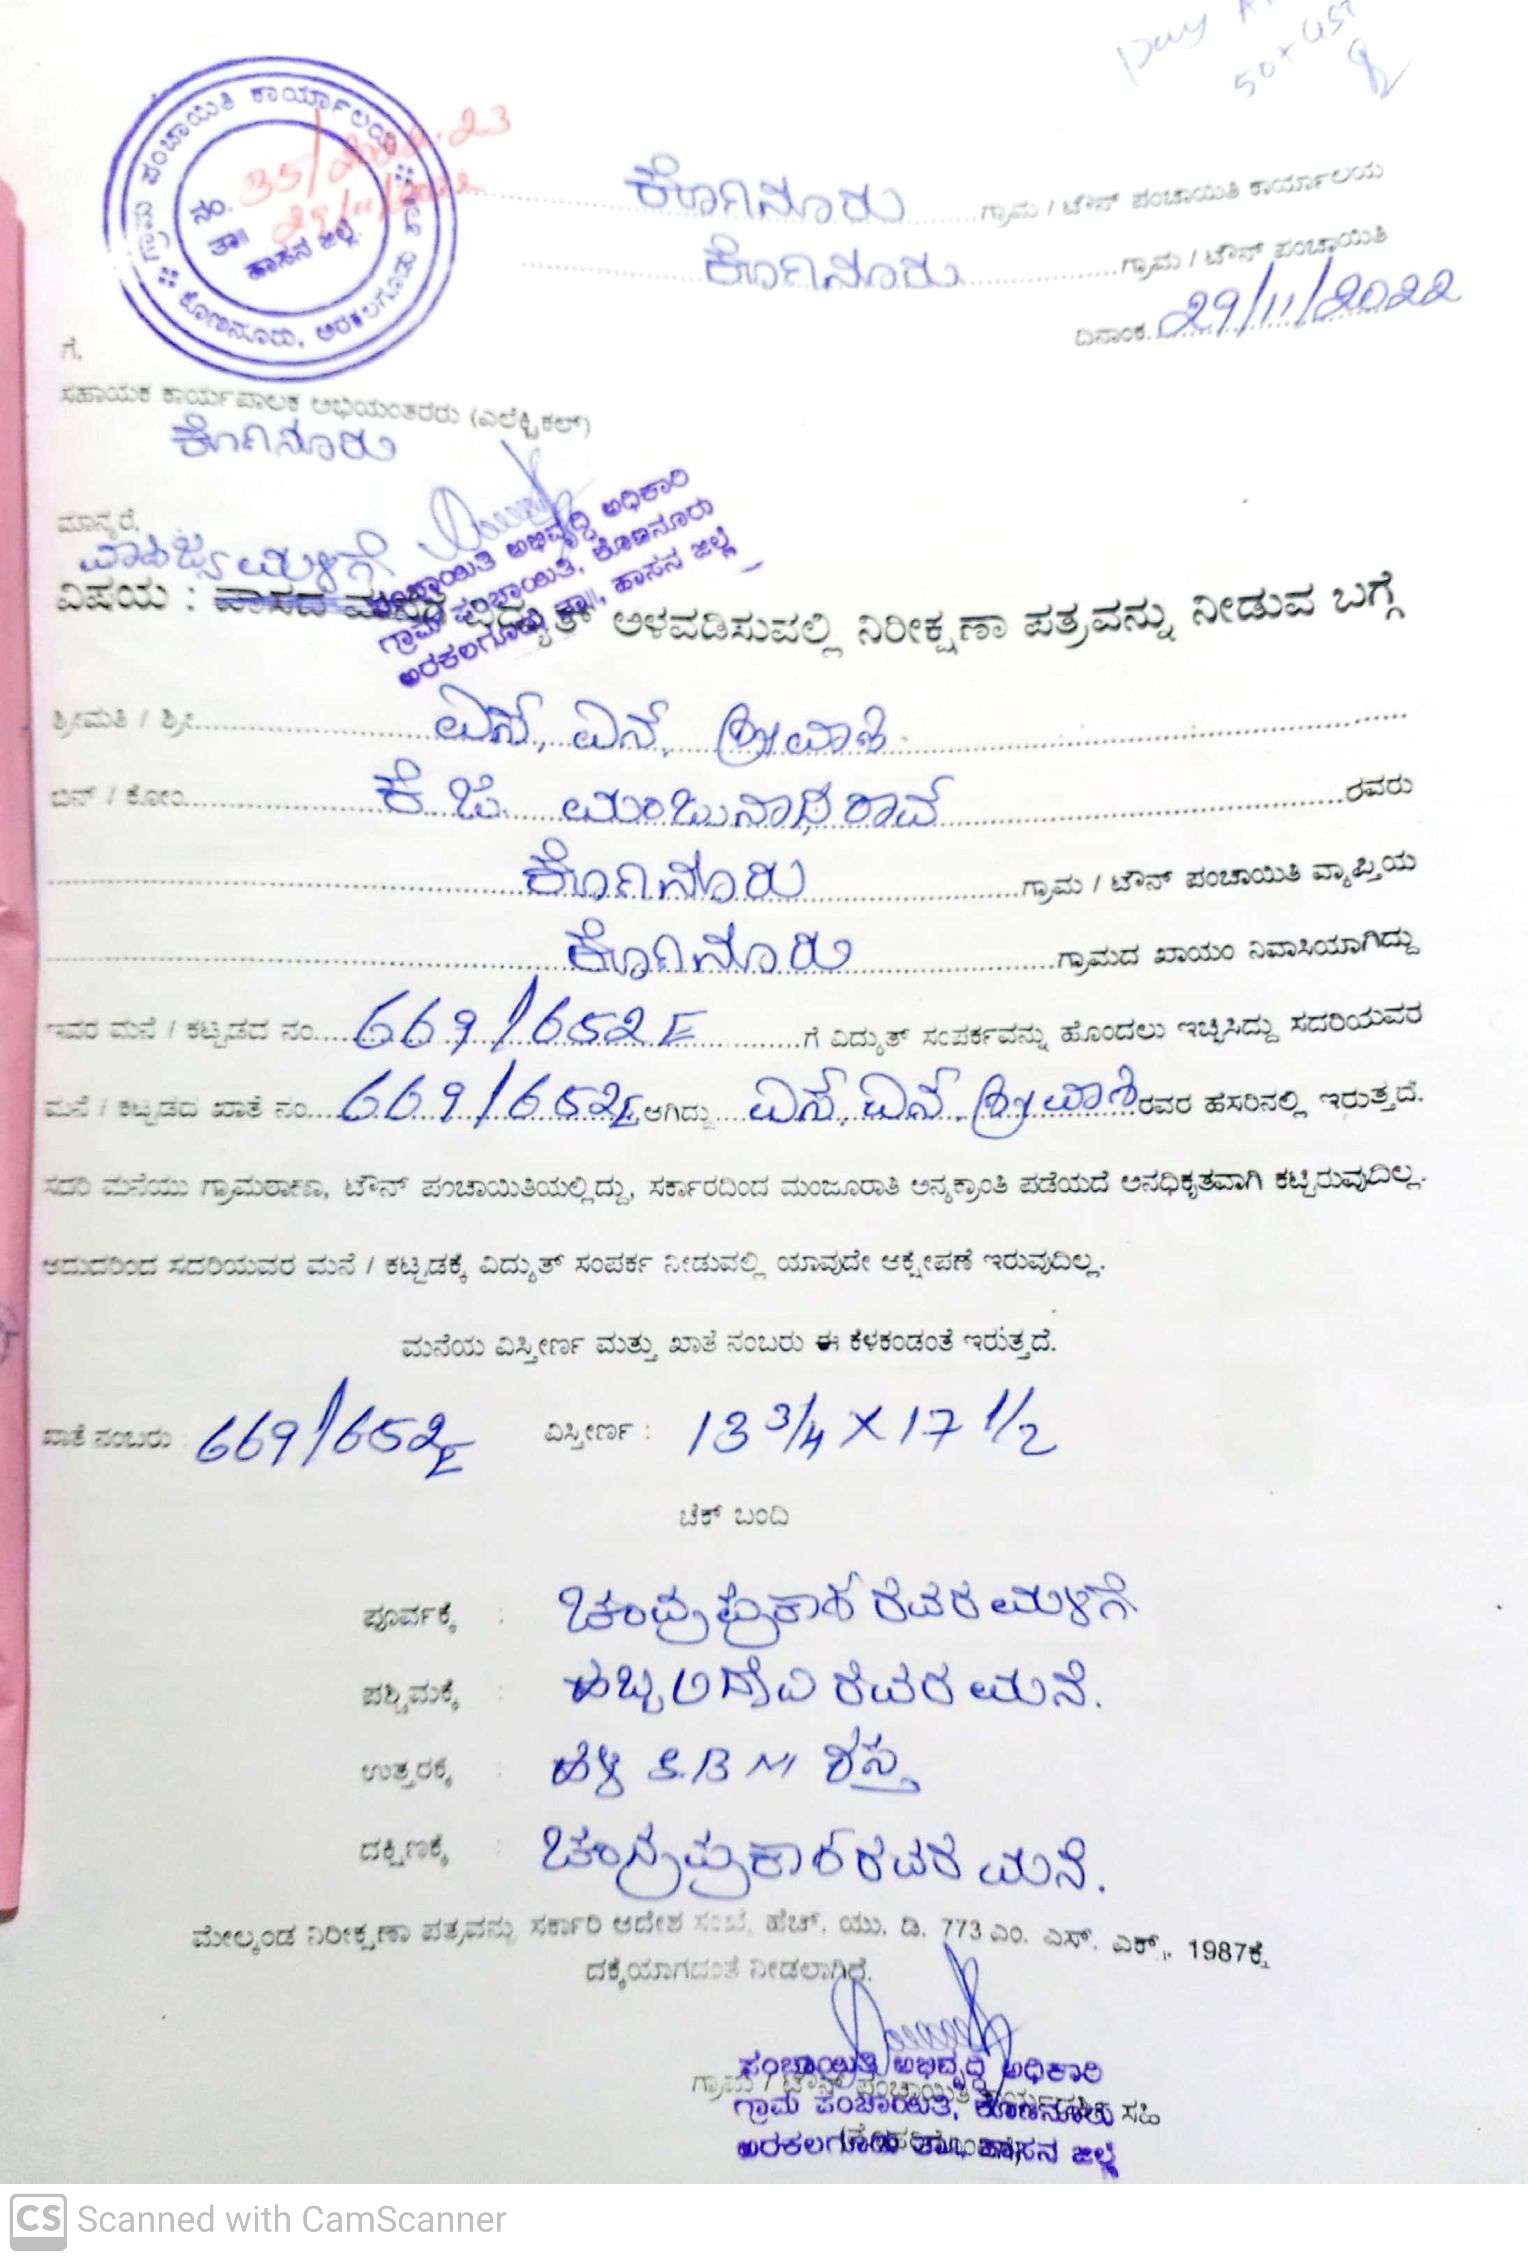 Pay
50+ GST
ಗ್ರಾಮ ಪಂಚಾಯಿತಿ ಕಾರ್ಯಾಲಯ
ನಂ. 35/2022-23
29/11/2022
ತಾ॥
ಹಾಸನ ಜಿಲ್ಲೆ.
ಕೊಣನೂರು, ಅರಕಲಗೂಡು
ಕೊಣನೂರು ಗ್ರಾಮ / ಟೌನ್ ಪಂಚಾಯಿತಿ ಕಾರ್ಯಾಲಯ
ಕೊಣನೂರು ಗ್ರಾಮ / ಟೌನ್ ಪಂಚಾಯಿತಿ
ದಿನಾಂಕ. 29/11/2022
ಗೆ,
ಸಹಾಯಕ ಕಾರ್ಯಪಾಲಕ ಅಭಿಯಂತರರು (ಎಲೆಕ್ಟ್ರಿಕಲ್)
ಕೊಣನೂರು
ಮಾನ್ಯರೆ,
ಪಂಚಾಯಿತಿ ಅಭಿವೃದ್ಧಿ ಅಧಿಕಾರಿ
ಗ್ರಾಮ ಪಂಚಾಯಿತಿ, ಕೊಣನೂರು
ಅರಕಲಗೂಡು ತಾ॥, ಹಾಸನ ಜಿಲ್ಲೆ
ವಾಣಿಜ್ಯ ಮಳಿಗೆ
ವಿಷಯ : ವಾಸದ ಮನೆಗೆ ವಿದ್ಯುತ್ ಅಳವಡಿಸುವಲ್ಲಿ ನಿರೀಕ್ಷಣಾ ಪತ್ರವನ್ನು ನೀಡುವ ಬಗ್ಗೆ
ಶ್ರೀಮತಿ / ಶ್ರೀ ಎಸ್, ಎನ್, ಶ್ರೀವಾಣಿ
ಬಿನ್ / ಕೋಂ ಕೆ.ಜಿ. ಮಂಜುನಾಥರಾವ್ ರವರು
ಕೊಣನೂರು ಗ್ರಾಮ / ಟೌನ್ ಪಂಚಾಯಿತಿ ವ್ಯಾಪ್ತಿಯ
ಕೊಣನೂರು ಗ್ರಾಮದ ಖಾಯಂ ನಿವಾಸಿಯಾಗಿದ್ದು
ಇವರ ಮನೆ / ಕಟ್ಟಡದ ನಂ. 669/652E ಗೆ ವಿದ್ಯುತ್ ಸಂಪರ್ಕವನ್ನು ಹೊಂದಲು ಇಚ್ಛಿಸಿದ್ದು ಸದರಿಯವರ
ಮನೆ / ಕಟ್ಟಡದ ಖಾತೆ ನಂ. 669/652E ಆಗಿದ್ದು ಎಸ್, ಎನ್, ಶ್ರೀವಾಣಿ ರವರ ಹಸರಿನಲ್ಲಿ ಇರುತ್ತದೆ.
ಸದರಿ ಮನೆಯು ಗ್ರಾಮಠಾಣಾ, ಟೌನ್ ಪಂಚಾಯಿತಿಯಲ್ಲಿದ್ದು, ಸರ್ಕಾರದಿಂದ ಮಂಜೂರಾತಿ ಅನ್ಯಕ್ರಾಂತಿ ಪಡೆಯದೆ ಅನಧಿಕೃತವಾಗಿ ಕಟ್ಟಿರುವುದಿಲ್ಲ.
ಆದುದರಿಂದ ಸದರಿಯವರ ಮನೆ / ಕಟ್ಟಡಕ್ಕೆ ವಿದ್ಯುತ್ ಸಂಪರ್ಕ ನೀಡುವಲ್ಲಿ ಯಾವುದೇ ಆಕ್ಷೇಪಣೆ ಇರುವುದಿಲ್ಲ.
ಮನೆಯ ವಿಸ್ತೀರ್ಣ ಮತ್ತು ಖಾತೆ ನಂಬರು ಈ ಕೆಳಕಂಡಂತೆ ಇರುತ್ತದೆ.
ಖಾತೆ ನಂಬರು : 669/652E ವಿಸ್ತೀರ್ಣ : 13 3/4 X 17 1/2
ಚೆಕ್ ಬಂದಿ
ಪೂರ್ವಕ್ಕೆ : ಚಂದ್ರಪ್ರಕಾಶ ರವರ ಮಳಿಗೆ
ಪಶ್ಚಿಮಕ್ಕೆ : ರವರ ಮನೆ.
ಉತ್ತರಕ್ಕೆ : ಹಳೆ K.B M ರಸ್ತೆ
ದಕ್ಷಿಣಕ್ಕೆ : ಚಂದ್ರಪ್ರಕಾಶರವರ ಮನೆ.
ಮೇಲ್ಕಂಡ ನಿರೀಕ್ಷಣಾ ಪತ್ರವನ್ನು ಸರ್ಕಾರಿ ಆದೇಶ ಸಂಖ್ಯೆ, ಹೆಚ್. ಯು. ಡಿ. 773 ಎಂ. ಎಸ್. ಎಕ್,. 1987ಕ್ಕೆ
ದಕ್ಕೆಯಾಗದಂತೆ ನೀಡಲಾಗಿದೆ.
ಪಂಚಾಯಿತಿ ಅಭಿವೃದ್ಧಿ ಅಧಿಕಾರಿ
ಗ್ರಾಮ / ಟೌನ್ ಪಂಚಾಯಿತಿ ಸಹಿ
ಗ್ರಾಮ ಪಂಚಾಯಿತಿ, ಕೊಣನೂರು
ಅರಕಲಗೂಡು ತಾ॥ ಹಾಸನ ಜಿಲ್ಲೆ
CS Scanned with CamScanner